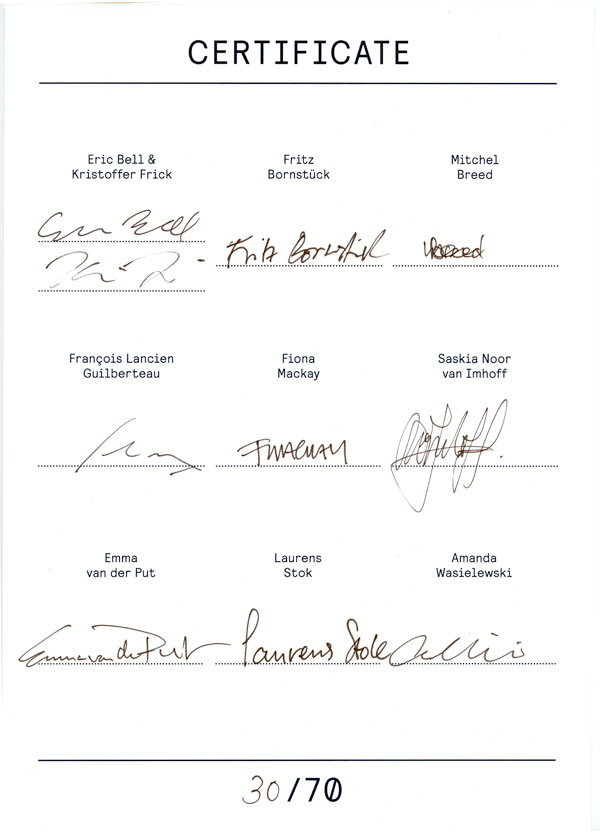 CERTIFICATE
Eric Bell &
Kristoffer Frick
Fritz
Bornstück
Mitchel
Breed
Eric Bell
Fritz Bornstück
Breed
François Lancien
Guilberteau
Fiona
Mackay
Saskia Noor
van Imhoff
FMACKAY
Emma
van der Put
Laurens
Stok
Amanda
Wasielewski
Emma van der Put
Laurens Stok
30/70